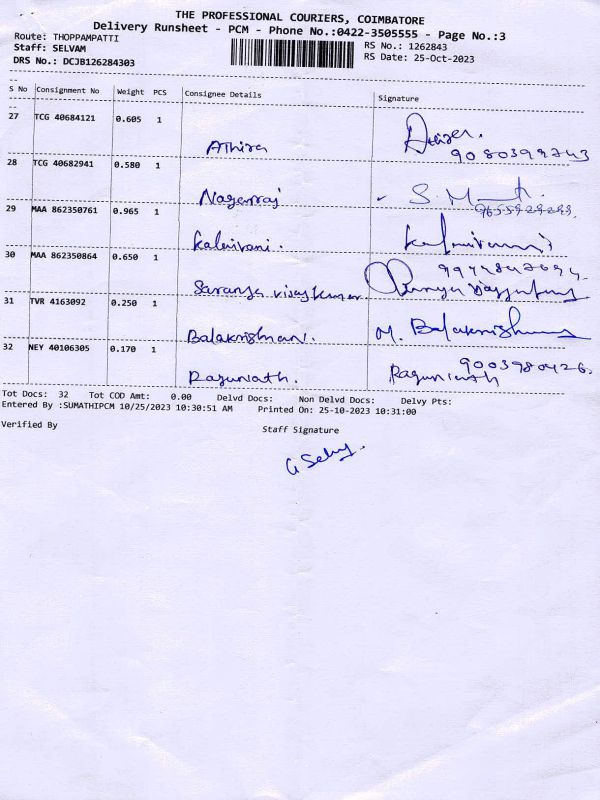 THE PROFESSIONAL COURIERS, COIMBATORE
Delivery Runsheet - PCM - Phone No.:0422-3505555 - Page No.:3
Route: THOPPAMPATTI RS No.: 1262843
Staff: SELVAM RS Date: 25-Oct-2023
DRS No.: DCJB126284303
S No Consignment No Weight PCS Consignee Details Signature
27 TCG 40684121 0.605 1
Athira 9080399743
28 TCG 40682941 0.580 1
Nagarraj
29 MAA 862350761 0.965 1
Kalaivani.
30 MAA 862350864 0.650 1
Saranya vijaykumar
31 TVR 4163092 0.250 1
Balakrishnan. M. Balakrishnan
32 NEY 40106305 0.170 1 9003980426.
Ragunath. Ragunath
Tot Docs: 32 Tot COD Amt: 0.00 Delvd Docs: Non Delvd Docs: Delvy Pts:
Entered By :SUMATHIPCM 10/25/2023 10:30:51 AM Printed On: 25-10-2023 10:31:00
Verified By Staff Signature